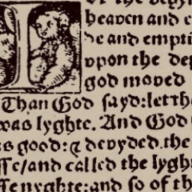 heaven and e
be and empti
vpon the dep
god moved
Than God sayd: let the
was lyghte. And God
s good: & devyded. the
ffe/and called the lygh
ffe nyghte: and so of th